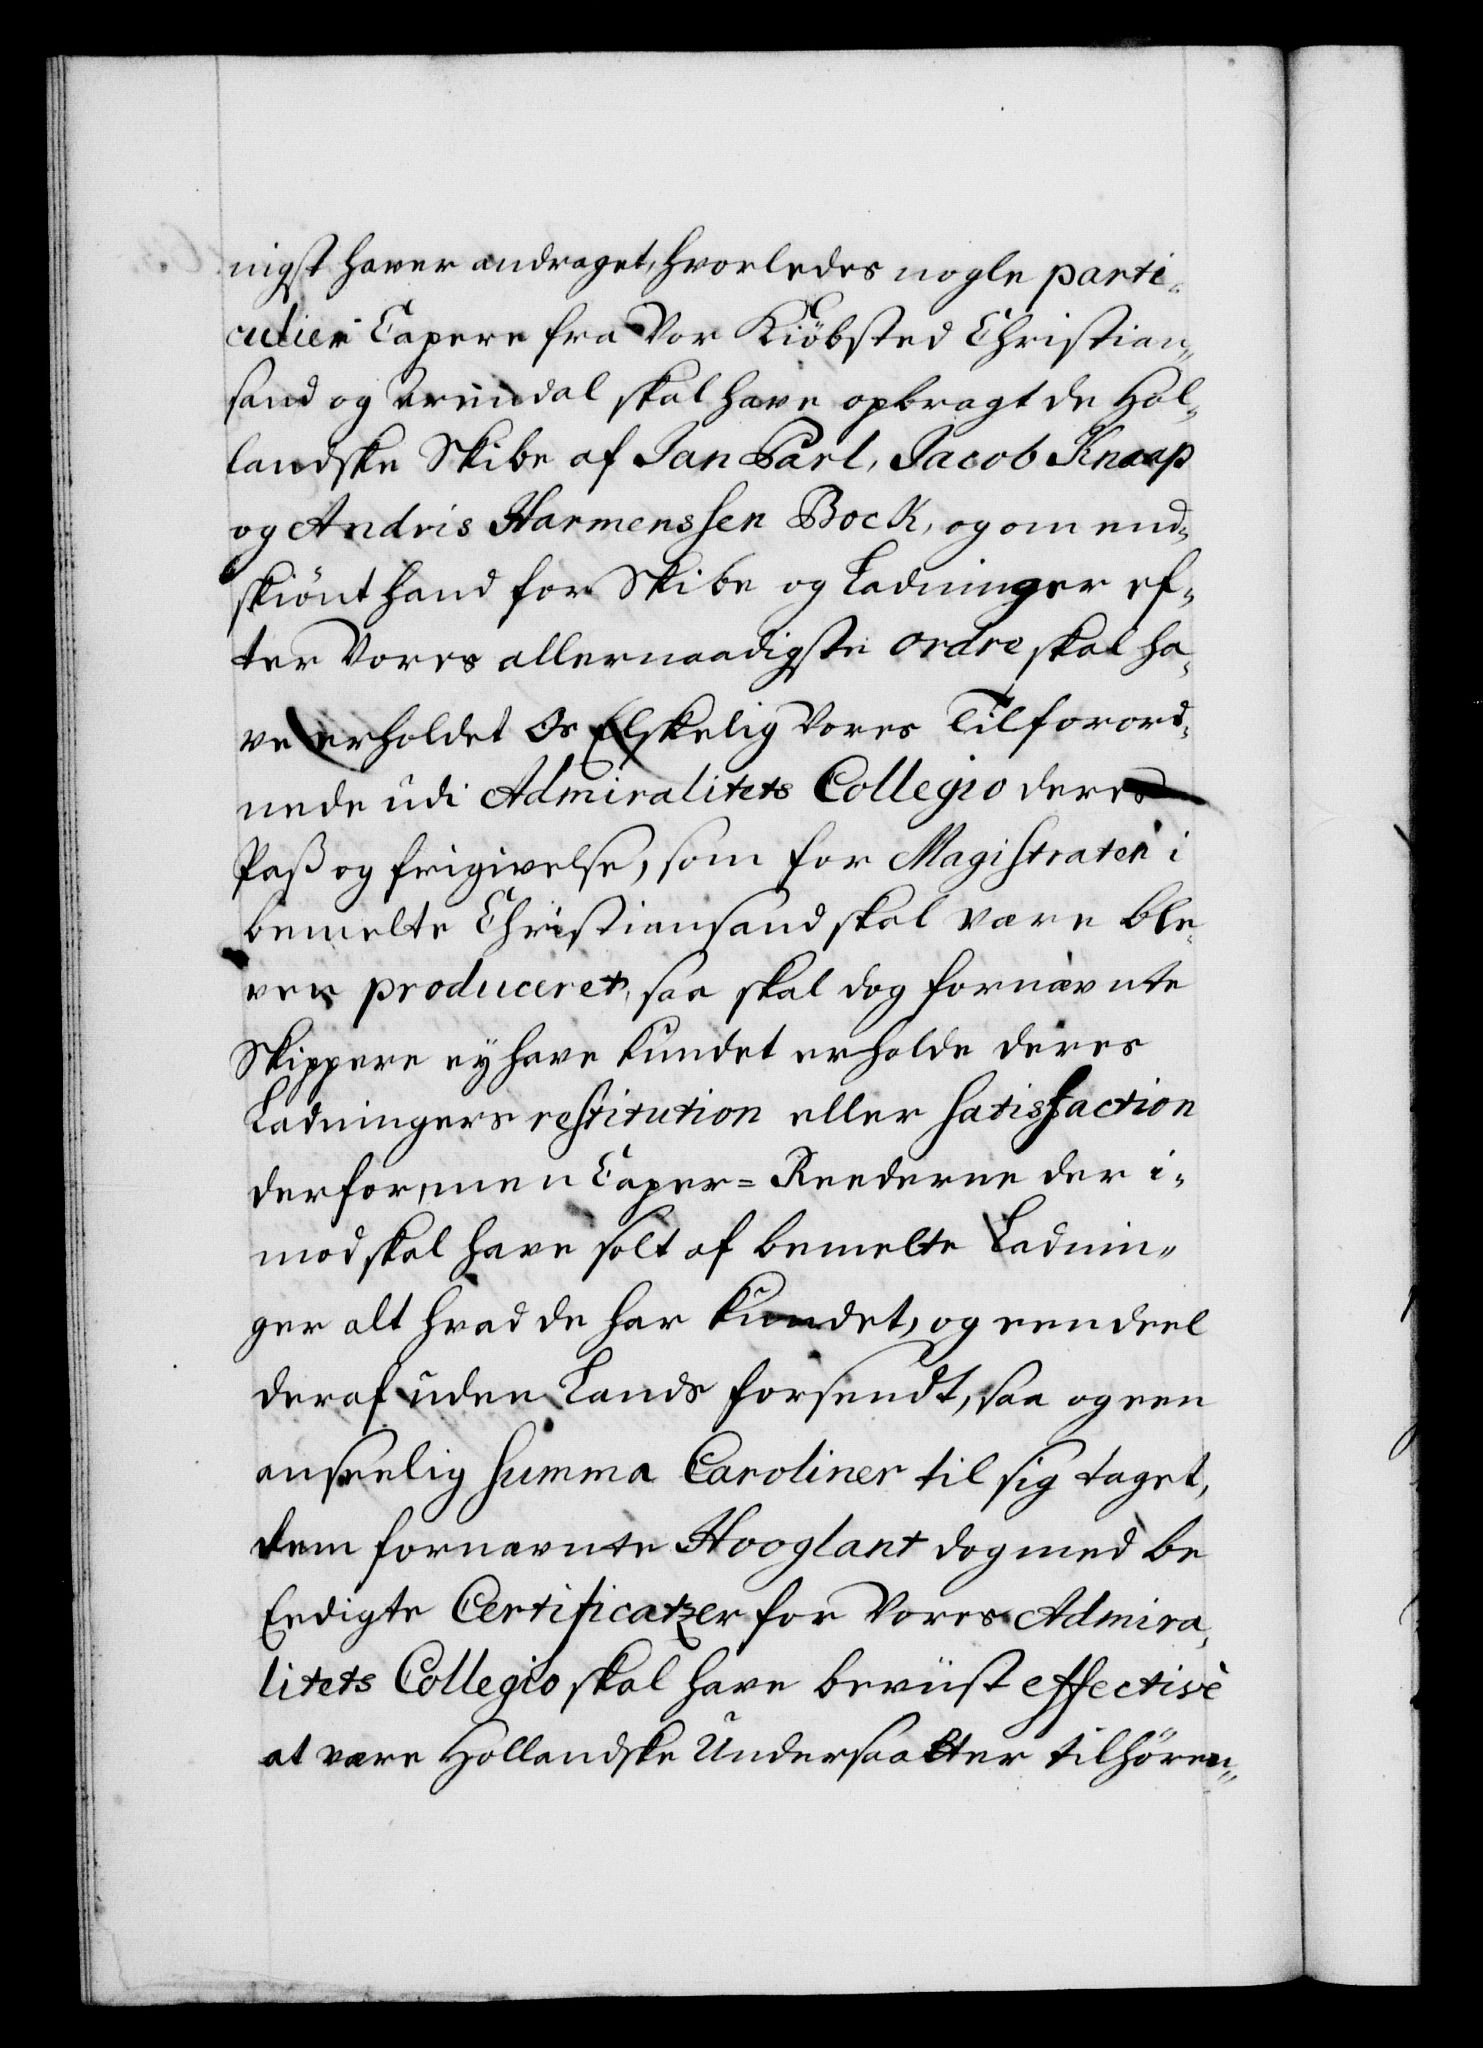 nigst haver andraget, hvorledes nogle parti-
culier Capere fra Vor Kiöbsted Christian-
sand og Arendal skal have opbragt de Hol-
landske Skibe af Jan Parl, Jacob Knaap
og Andris Harmenssen Bock, og om end-
skiönt hand for Skibe og Ladninger ef-
ter Vores allernaadigste ordre skal ha-
ve erholdet Os Elskelig Vores Tilforord-
nede udi Admiralitets Collegio deres
Pass og frigivelse, som for Magistraten i
bemelte Christiansand skal være ble-
ven produceret, saa skal dog fornævnte
Skippere ey have kundet erholde deres
Ladningers restitution eller satisfaction
derfor, men Caper=Reederne der i-
mod skal have solt af bemelte Ladnin-
ger alt hvad de har kundet, og eendeel
deraf uden Lands forsendt, saa og een
anseelig summa Caroliner til sig taget,
dem fornævnte Hooglant dog med be
Eedigte Certificatzer for Vores Admira-
litets Collegio skal have beviist effectivè
at være Hollandske Undersaatter tilhören-